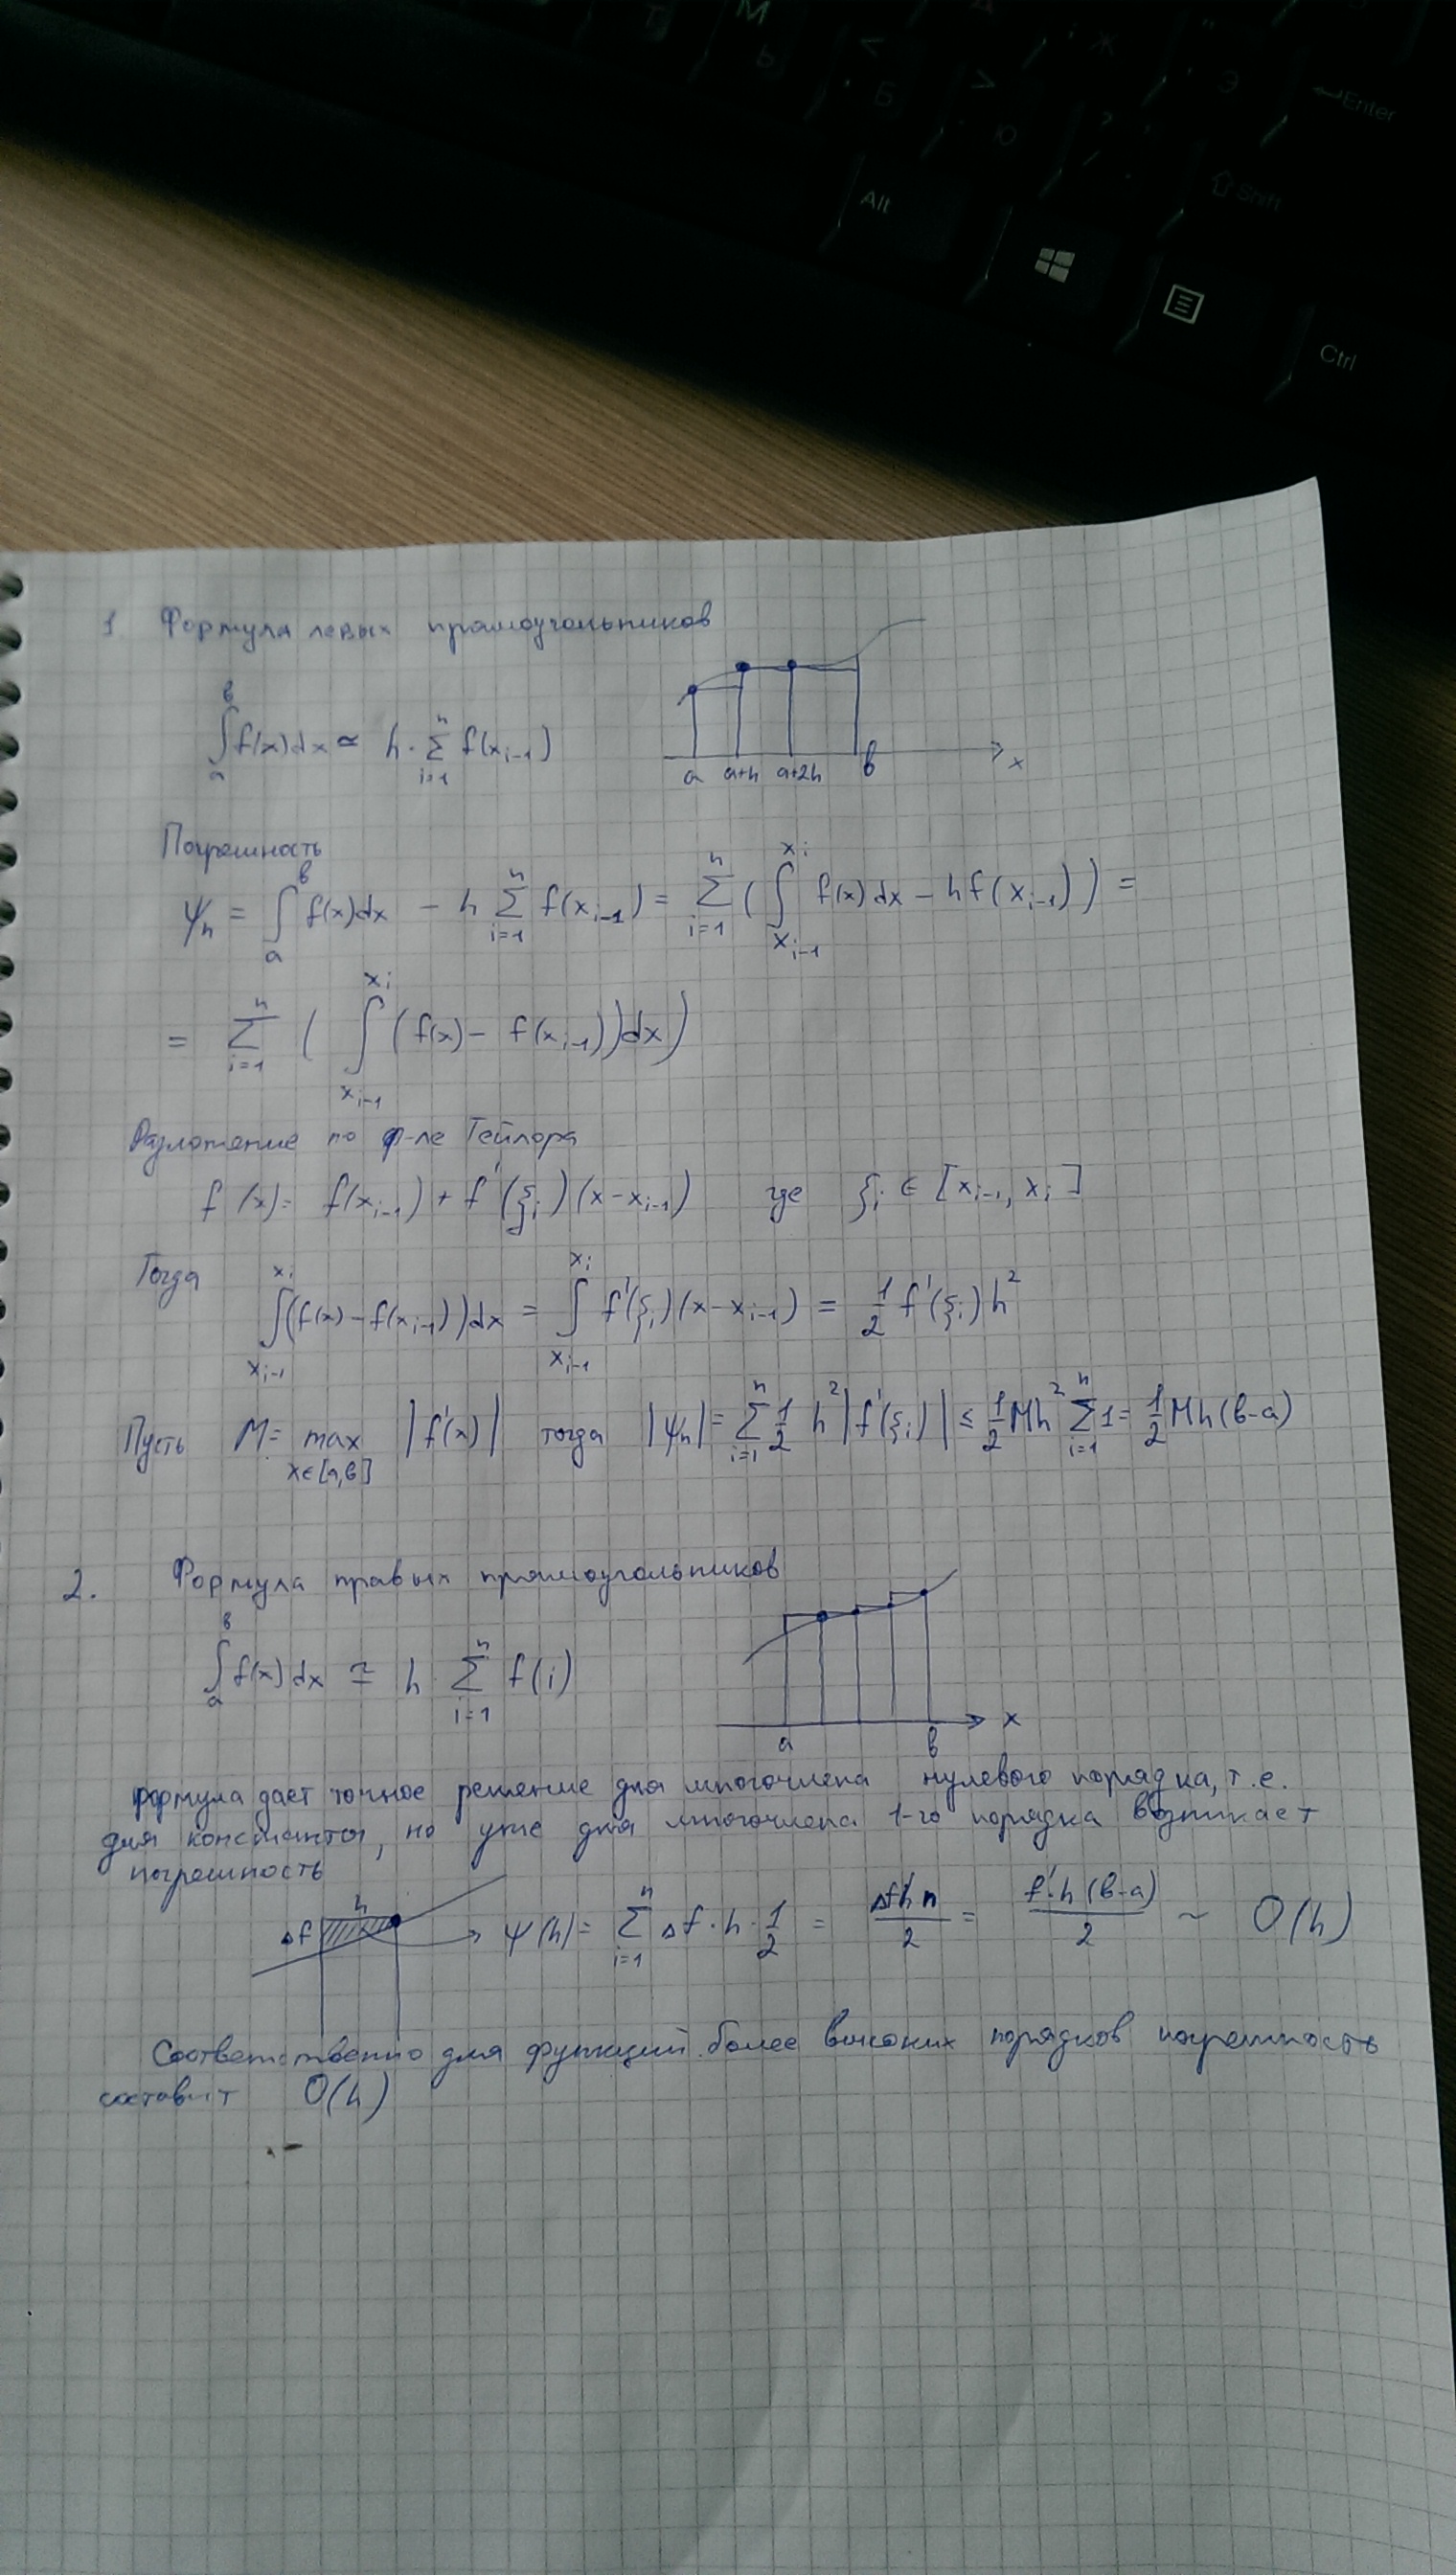 М
Ь
<
Б
>
Ю
Ж
Э
Enter
Shift
Alt
Ctrl
1 Формула левых прямоугольников
∫ₐᵇ f(x)dx ≃ h · ∑ᵢ₌₁ⁿ f(xᵢ₋₁)
a a+h a+2h b x
Погрешность
ψₕ = ∫ₐᵇ f(x)dx − h ∑ᵢ₌₁ⁿ f(xᵢ₋₁) = ∑ᵢ₌₁ⁿ ( ∫_{xᵢ₋₁}^{xᵢ} f(x)dx − hf(xᵢ₋₁) ) =
= ∑ᵢ₌₁ⁿ ( ∫_{xᵢ₋₁}^{xᵢ} (f(x) − f(xᵢ₋₁))dx )
Разложение по ф-ле Тейлора
f(x) = f(xᵢ₋₁) + f'(ξᵢ)(x−xᵢ₋₁) где ξᵢ ∈ [xᵢ₋₁, xᵢ]
Тогда ∫_{xᵢ₋₁}^{xᵢ} (f(x) − f(xᵢ₋₁))dx = ∫_{xᵢ₋₁}^{xᵢ} f'(ξᵢ)(x−xᵢ₋₁) = 1/2 f'(ξᵢ)h²
Пусть M = max_{x∈[a,b]} |f'(x)| тогда |ψₕ| = ∑ᵢ₌₁ⁿ 1/2 h² |f'(ξᵢ)| ≤ 1/2 Mh² ∑ᵢ₌₁ⁿ 1 = 1/2 Mh(b−a)
2. Формула правых прямоугольников
∫ₐᵇ f(x)dx ≃ h ∑ᵢ₌₁ⁿ f(i)
a b x
формула дает точное решение для многочлена нулевого порядка, т.е.
для константы, но уже для многочлена 1-го порядка возникает
погрешность
h
Δf
ψ(h) = ∑ᵢ₌₁ⁿ Δf · h · 1/2 = Δfhn/2 = f'·h(b−a)/2 ~ O(h)
Соответственно для функций более высоких порядков погрешность
составит O(h)